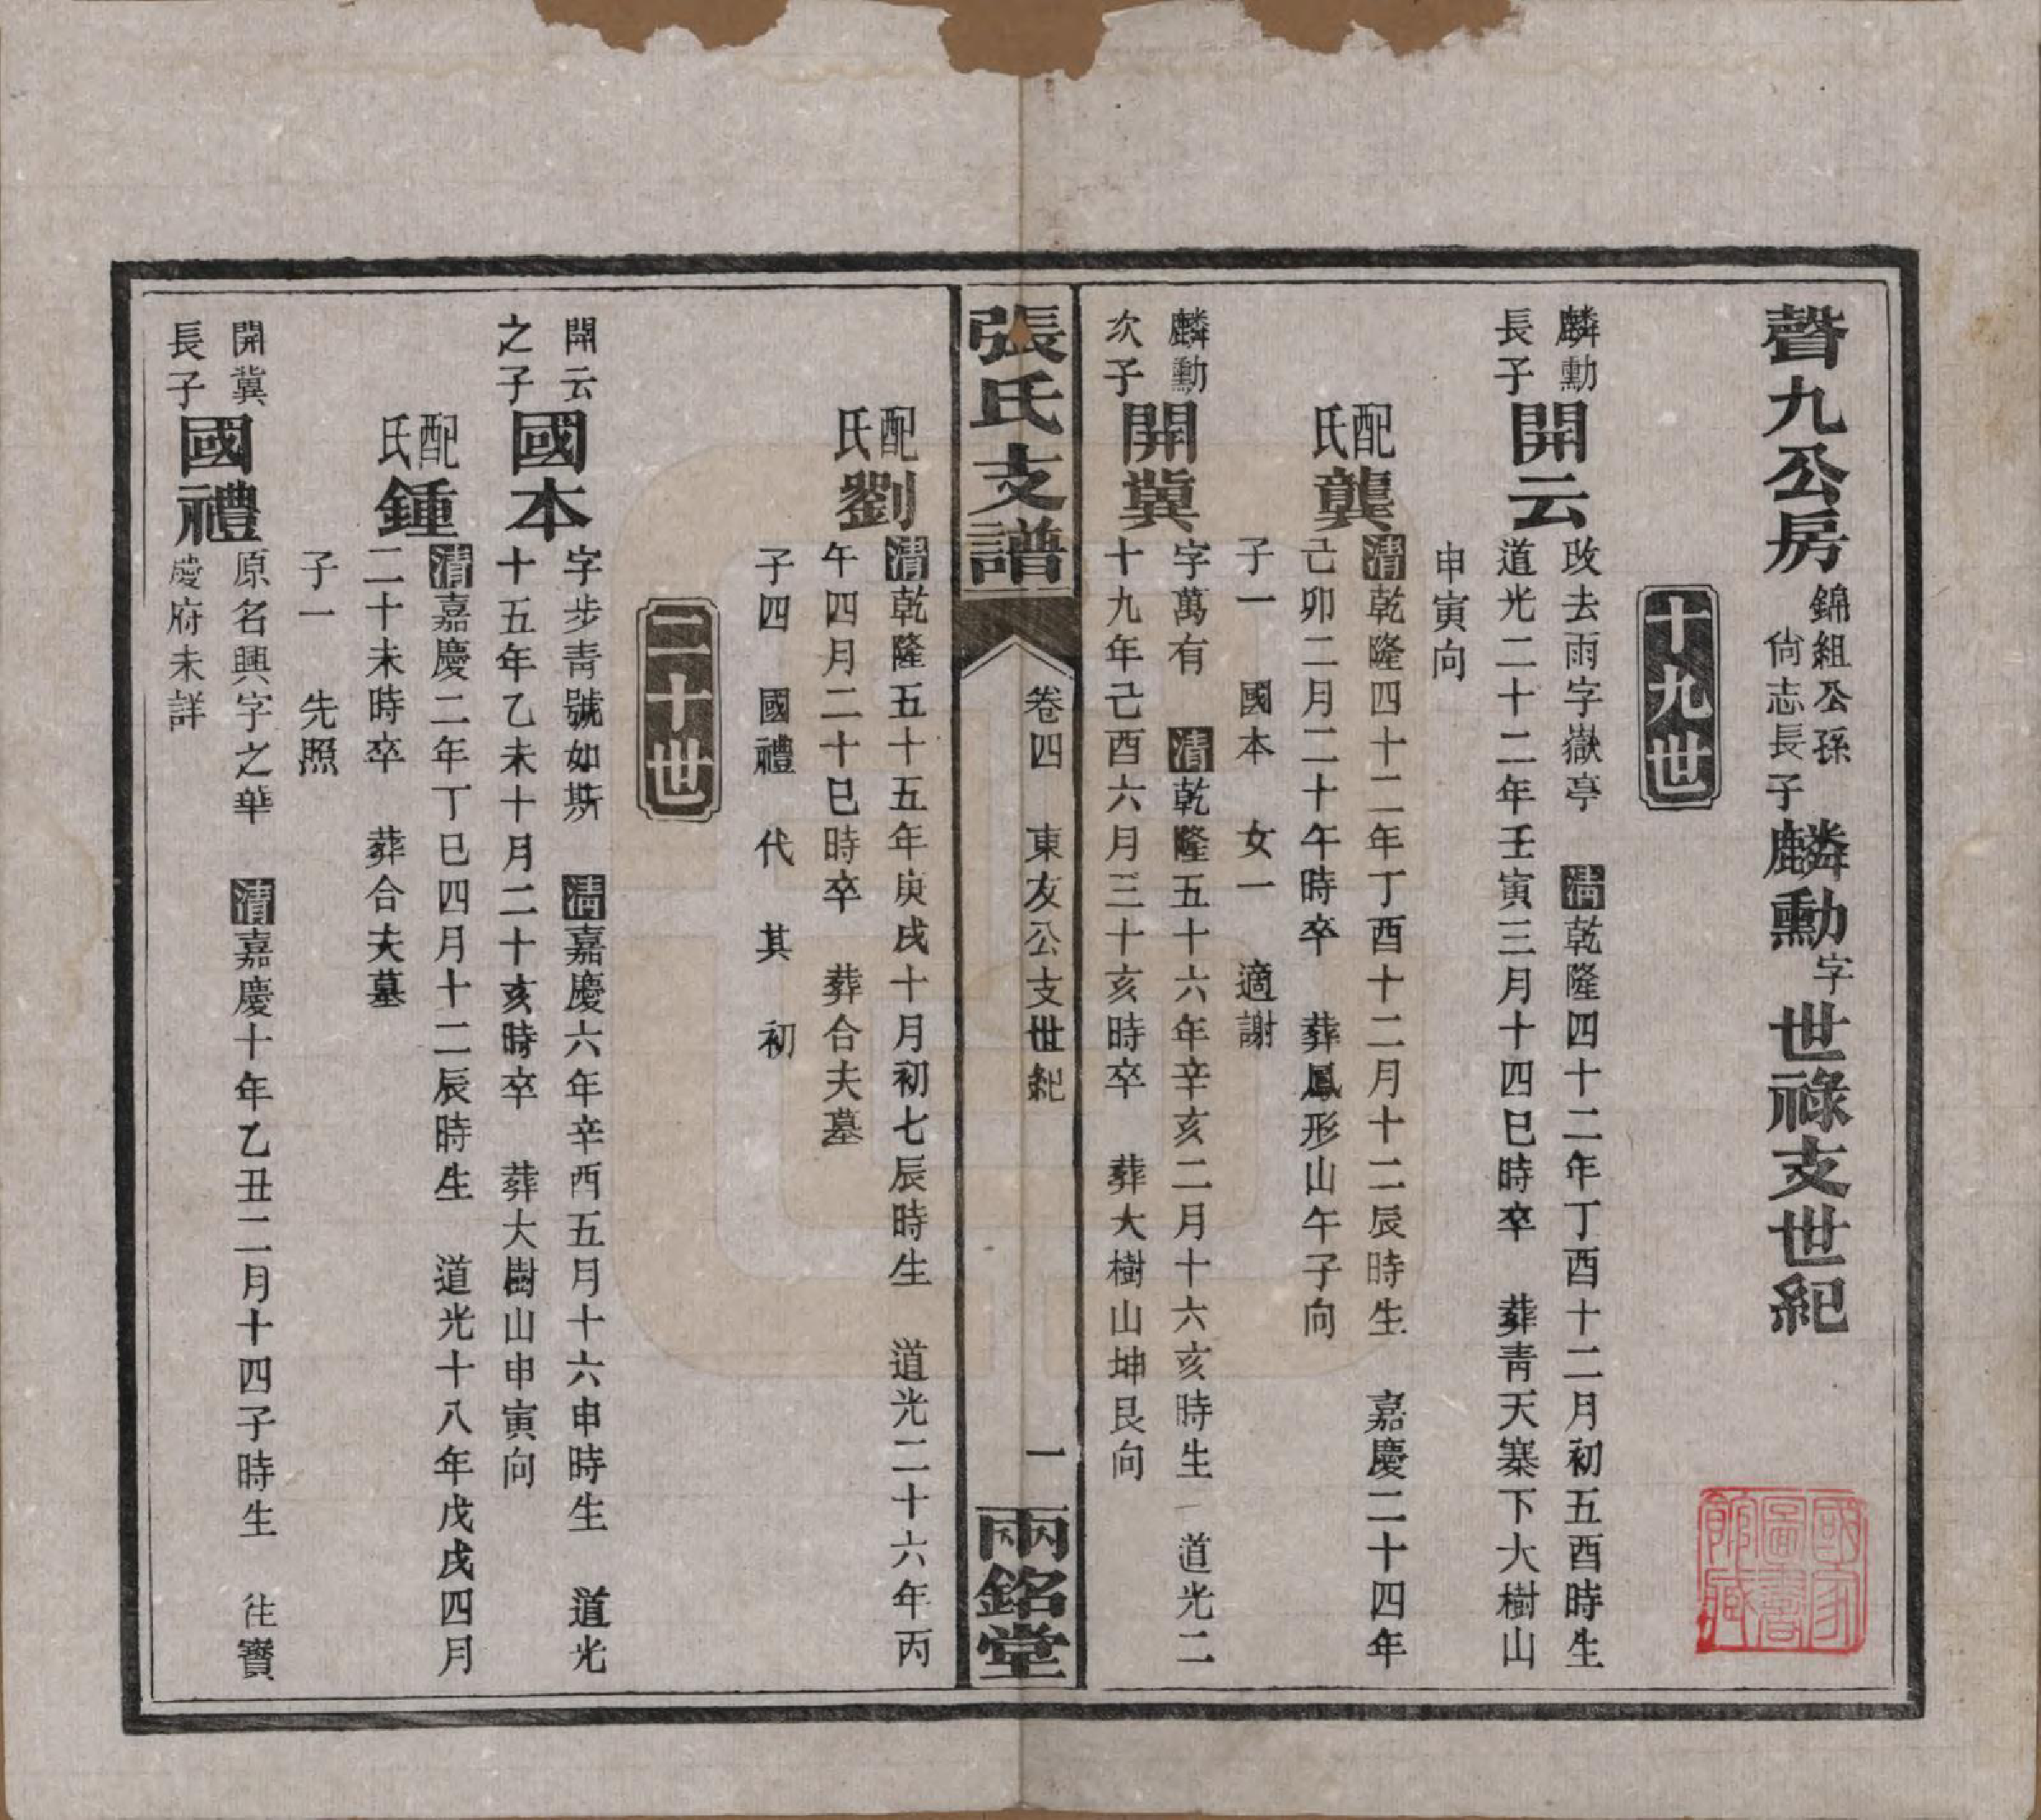 聲九公房
錦組公孫
尙志長子
麟勳字世祿支世紀
十九世
麟勳
長子
開云
改去雨字嶽亭　清乾隆四十二年丁酉十二月初五酉時生
道光二十二年壬寅三月十四巳時卒　葬靑天寨下大樹山
申寅向
配
氏
龔
清乾隆四十二年丁酉十二月十二辰時生　嘉慶二十四年
己卯二月二十午時卒　葬鳳形山午子向
子一　國本　女一　適謝
麟勳
次子
開冀
字萬有　清乾隆五十六年辛亥二月十六亥時生　道光二
十九年己酉六月三十亥時卒　葬大樹山坤艮向
張氏支譜
卷四　東友公支世紀
一
兩銘堂
配
氏
劉
清乾隆五十五年庚戌十月初七辰時生　道光二十六年丙
午四月二十巳時卒　葬合夫墓
子四　國禮　代　其　初
二十世
開云
之子
國本
字步靑號如斯　清嘉慶六年辛酉五月十六申時生　道光
十五年乙未十月二十亥時卒　葬大樹山申寅向
配
氏
鍾
清嘉慶二年丁巳四月十二辰時生　道光十八年戊戌四月
二十未時卒　葬合夫墓
子一　先照
開冀
長子
國禮
原名興字之華　清嘉慶十年乙丑二月十四子時生　往寶
慶府未詳
國家
圖書
館藏